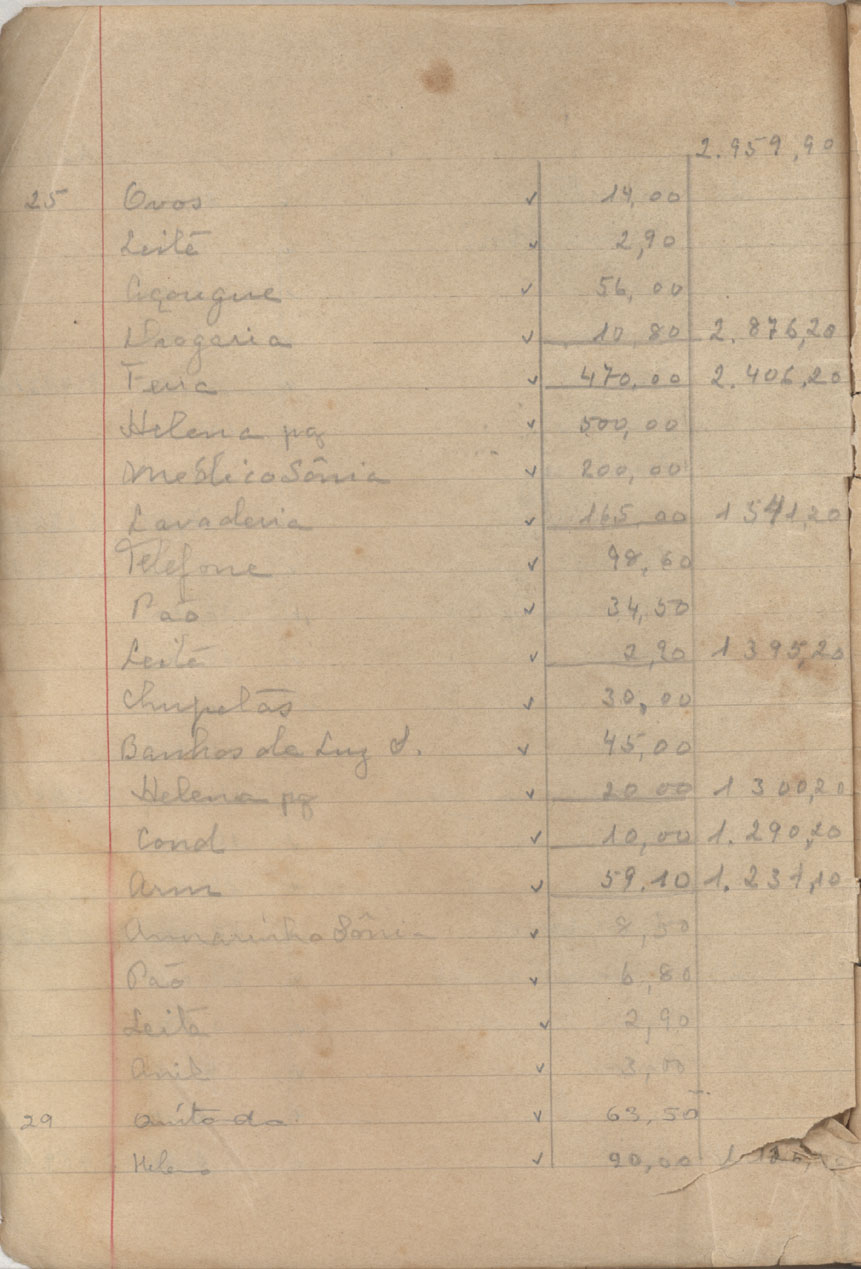 2.959,90
25 Ovos v 14,00
Leite v 2,90
Açougue v 56,00
Drogaria v 10,80 2.876,20
Feira v 470,00 2.406,20
Helena pg v 500,00
Médico Sônia v 200,00
Lavaderia v 165,00 1541,20
Telefone 98,60
Pão v 34,50
Leite v 2,90 1395,20
Chupetas v 30,00
Banhos de Luz S. v 45,00
Helena pg v 20,00 1300,20
Cond v 10,00 1.290,20
Arm v 59,10 1.231,10
Armarinho Sônia v 8,30
Pão v 6,80
Leite v 2,90
Anil v 3,00
29 v 63,50
Helena v 20,00